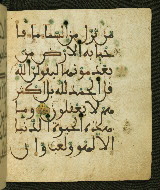 من نزل من السما ما فا
حيا به الارض من
بعد موتها ليقولن الله
قل الحمد لله بل اكثر
هم لا يعقلون وما
هذه الحيوة الدنيا
الا لهو ولعب وان